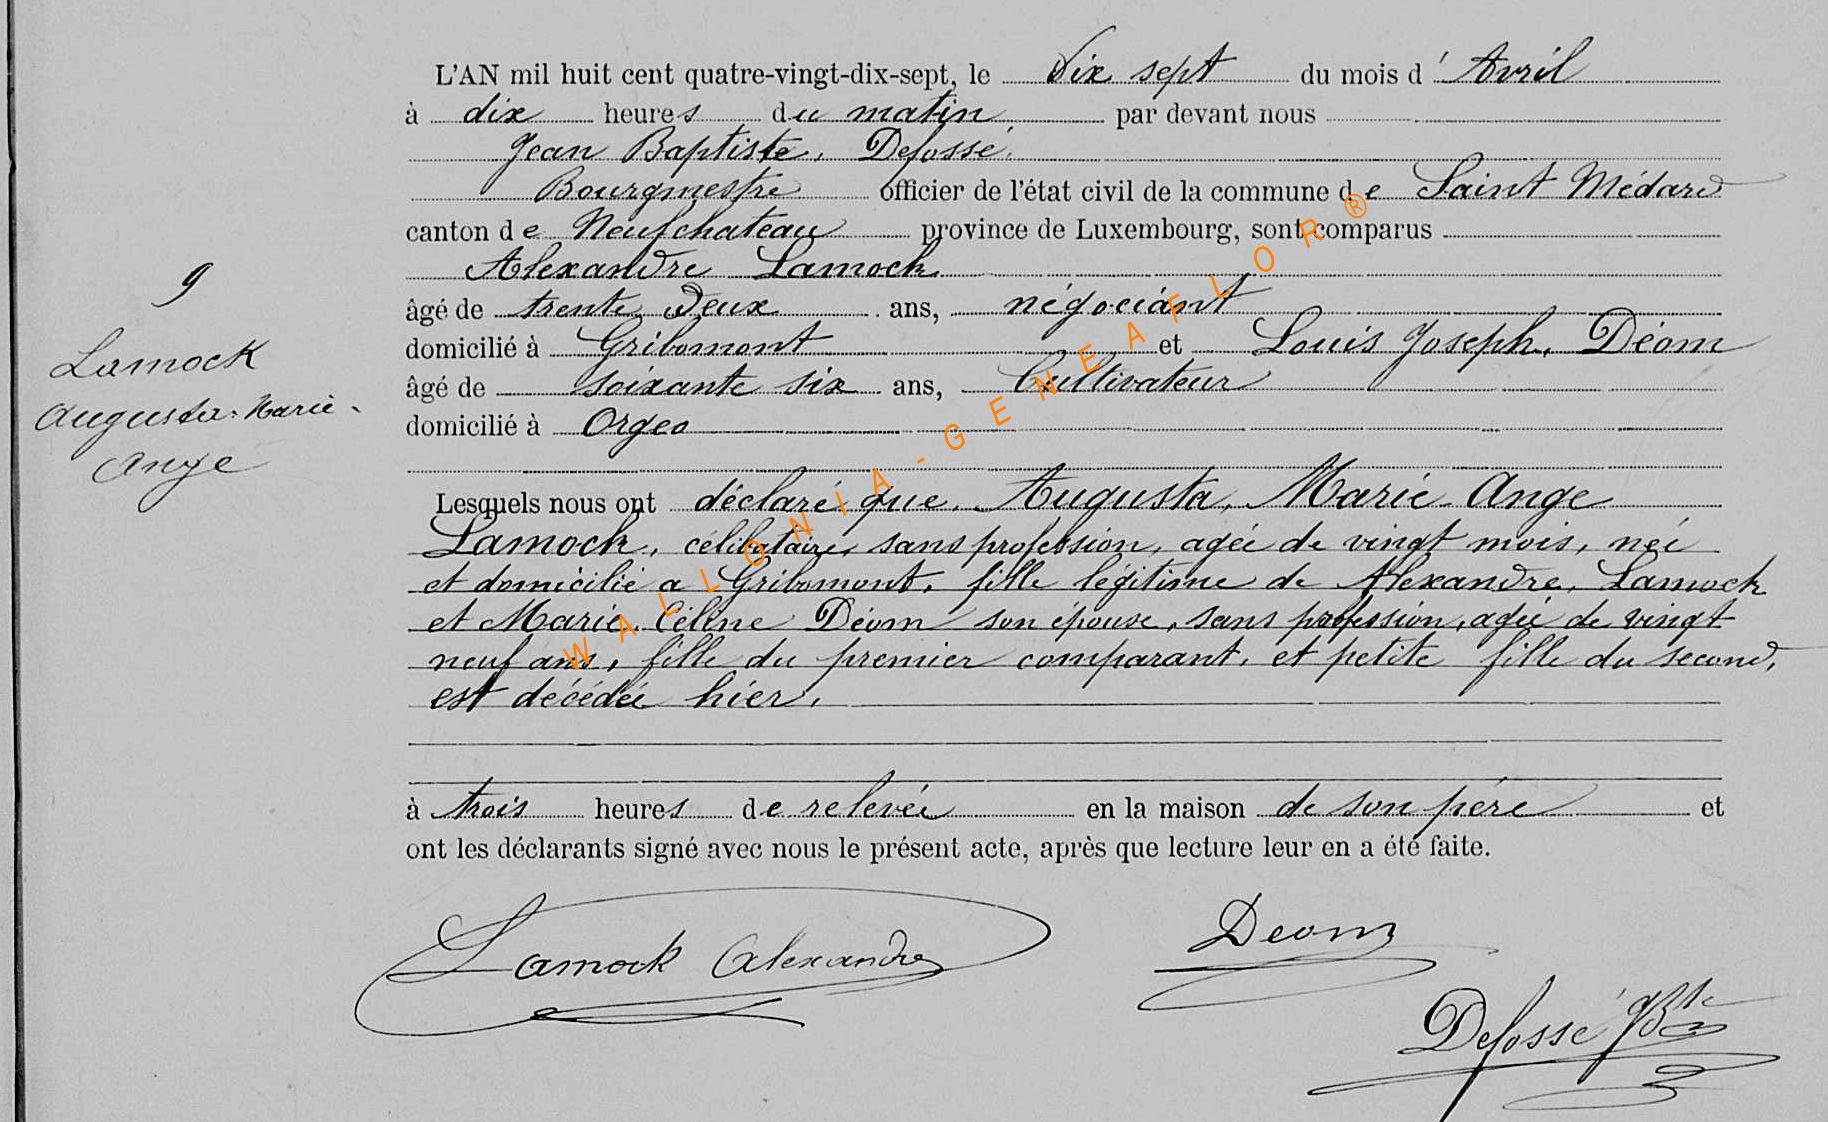 L'AN mil huit cent quatre-vingt-dix-sept, le dix sept du mois d' Avril
à dix heures du matin par devant nous
Jean Baptiste, Defossé,
Bourgmestre officier de l'état civil de la commune de Saint Médard
canton de Neufchateau province de Luxembourg, sont comparus
Alexandre Lamock
âgé de trente deux ans, négociant
domicilié à Gribomont et Louis Joseph, Déom
âgé de soixante six ans, Cultivateur
domicilié à Orgeo
9
Lamock
Augusta. Marie.
Ange
Lesquels nous ont déclaré que, Augusta, Marie-Ange
Lamock, célibataire, sans profession, agée de vingt mois, née
et domicilié a Gribomont, fille légitime de Alexandre, Lamock
et Marie, Céline Déom son épouse, sans profession, agée de vingt
neuf ans, fille du premier comparant, et petite fille du second,
est décédée hier,
à trois heures de relevée en la maison de son père et
ont les déclarants signé avec nous le présent acte, après que lecture leur en a été faite.
Lamock Alexandre
Deom
Defossé JBte
WALLONIA-GENEAFLOR®